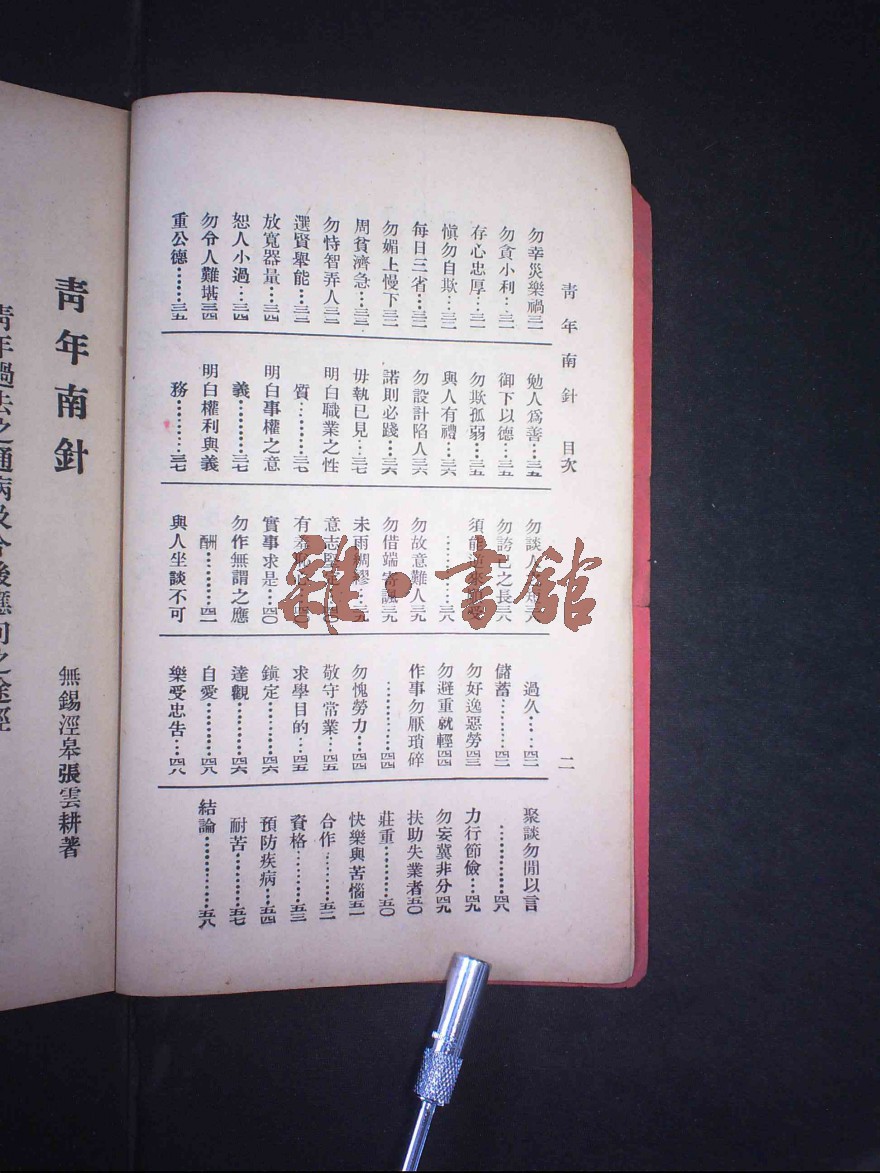 青年南針　目次　二
勿幸災樂禍三一
勿貪小利…三一
存心忠厚…三一
愼勿自欺…三二
每日三省…三二
勿媚上慢下三二
周貧濟急…三三
勿恃智弄人三三
選賢舉能…三三
放寬器量…三四
恕人小過…三四
勿令人難堪三四
重公德……三五
勉人爲善…三五
御下以德…三五
勿欺孤弱…三五
與人有禮…三六
勿設計陷人三六
諾則必踐…三六
毋執己見…三七
明白職業之性
質………三七
明白事權之意
義………三七
明白權利與義
務………三七
勿談人
勿誇己之長三八
須能
………三八
勿故意難人三九
勿借端寄諷三九
未雨綢繆…三九
意志堅定…四〇
有
實事求是…四〇
勿作無謂之應
酬………四一
與人坐談不可
過久……四二
儲蓄………四二
勿好逸惡勞四三
勿避重就輕四四
作事勿厭瑣碎
………四四
勿愧勞力…四四
敬守常業…四五
求學目的…四五
鎭定………四六
達觀………四六
自愛………四八
樂受忠告…四八
聚談勿閒以言
………四八
力行節儉…四九
勿妄冀非分四九
扶助失業者五〇
莊重………五〇
快樂與苦惱五一
合作………五二
資格………五三
預防疾病…五四
耐苦………五七
結論………五八
雜·書館
青年南針
無錫涇皋張雲耕著
青年過去之通病及今後應向之途徑